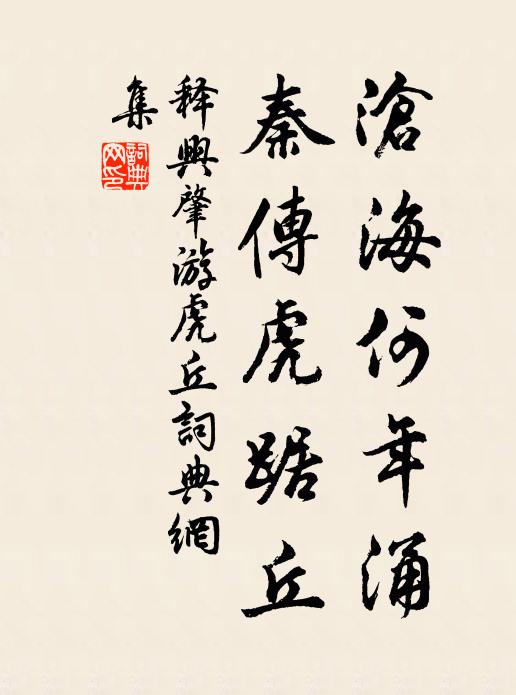 滄海何年涌
秦傳虎踞丘
释興肇游虎丘詞典網
集
詞典
网印